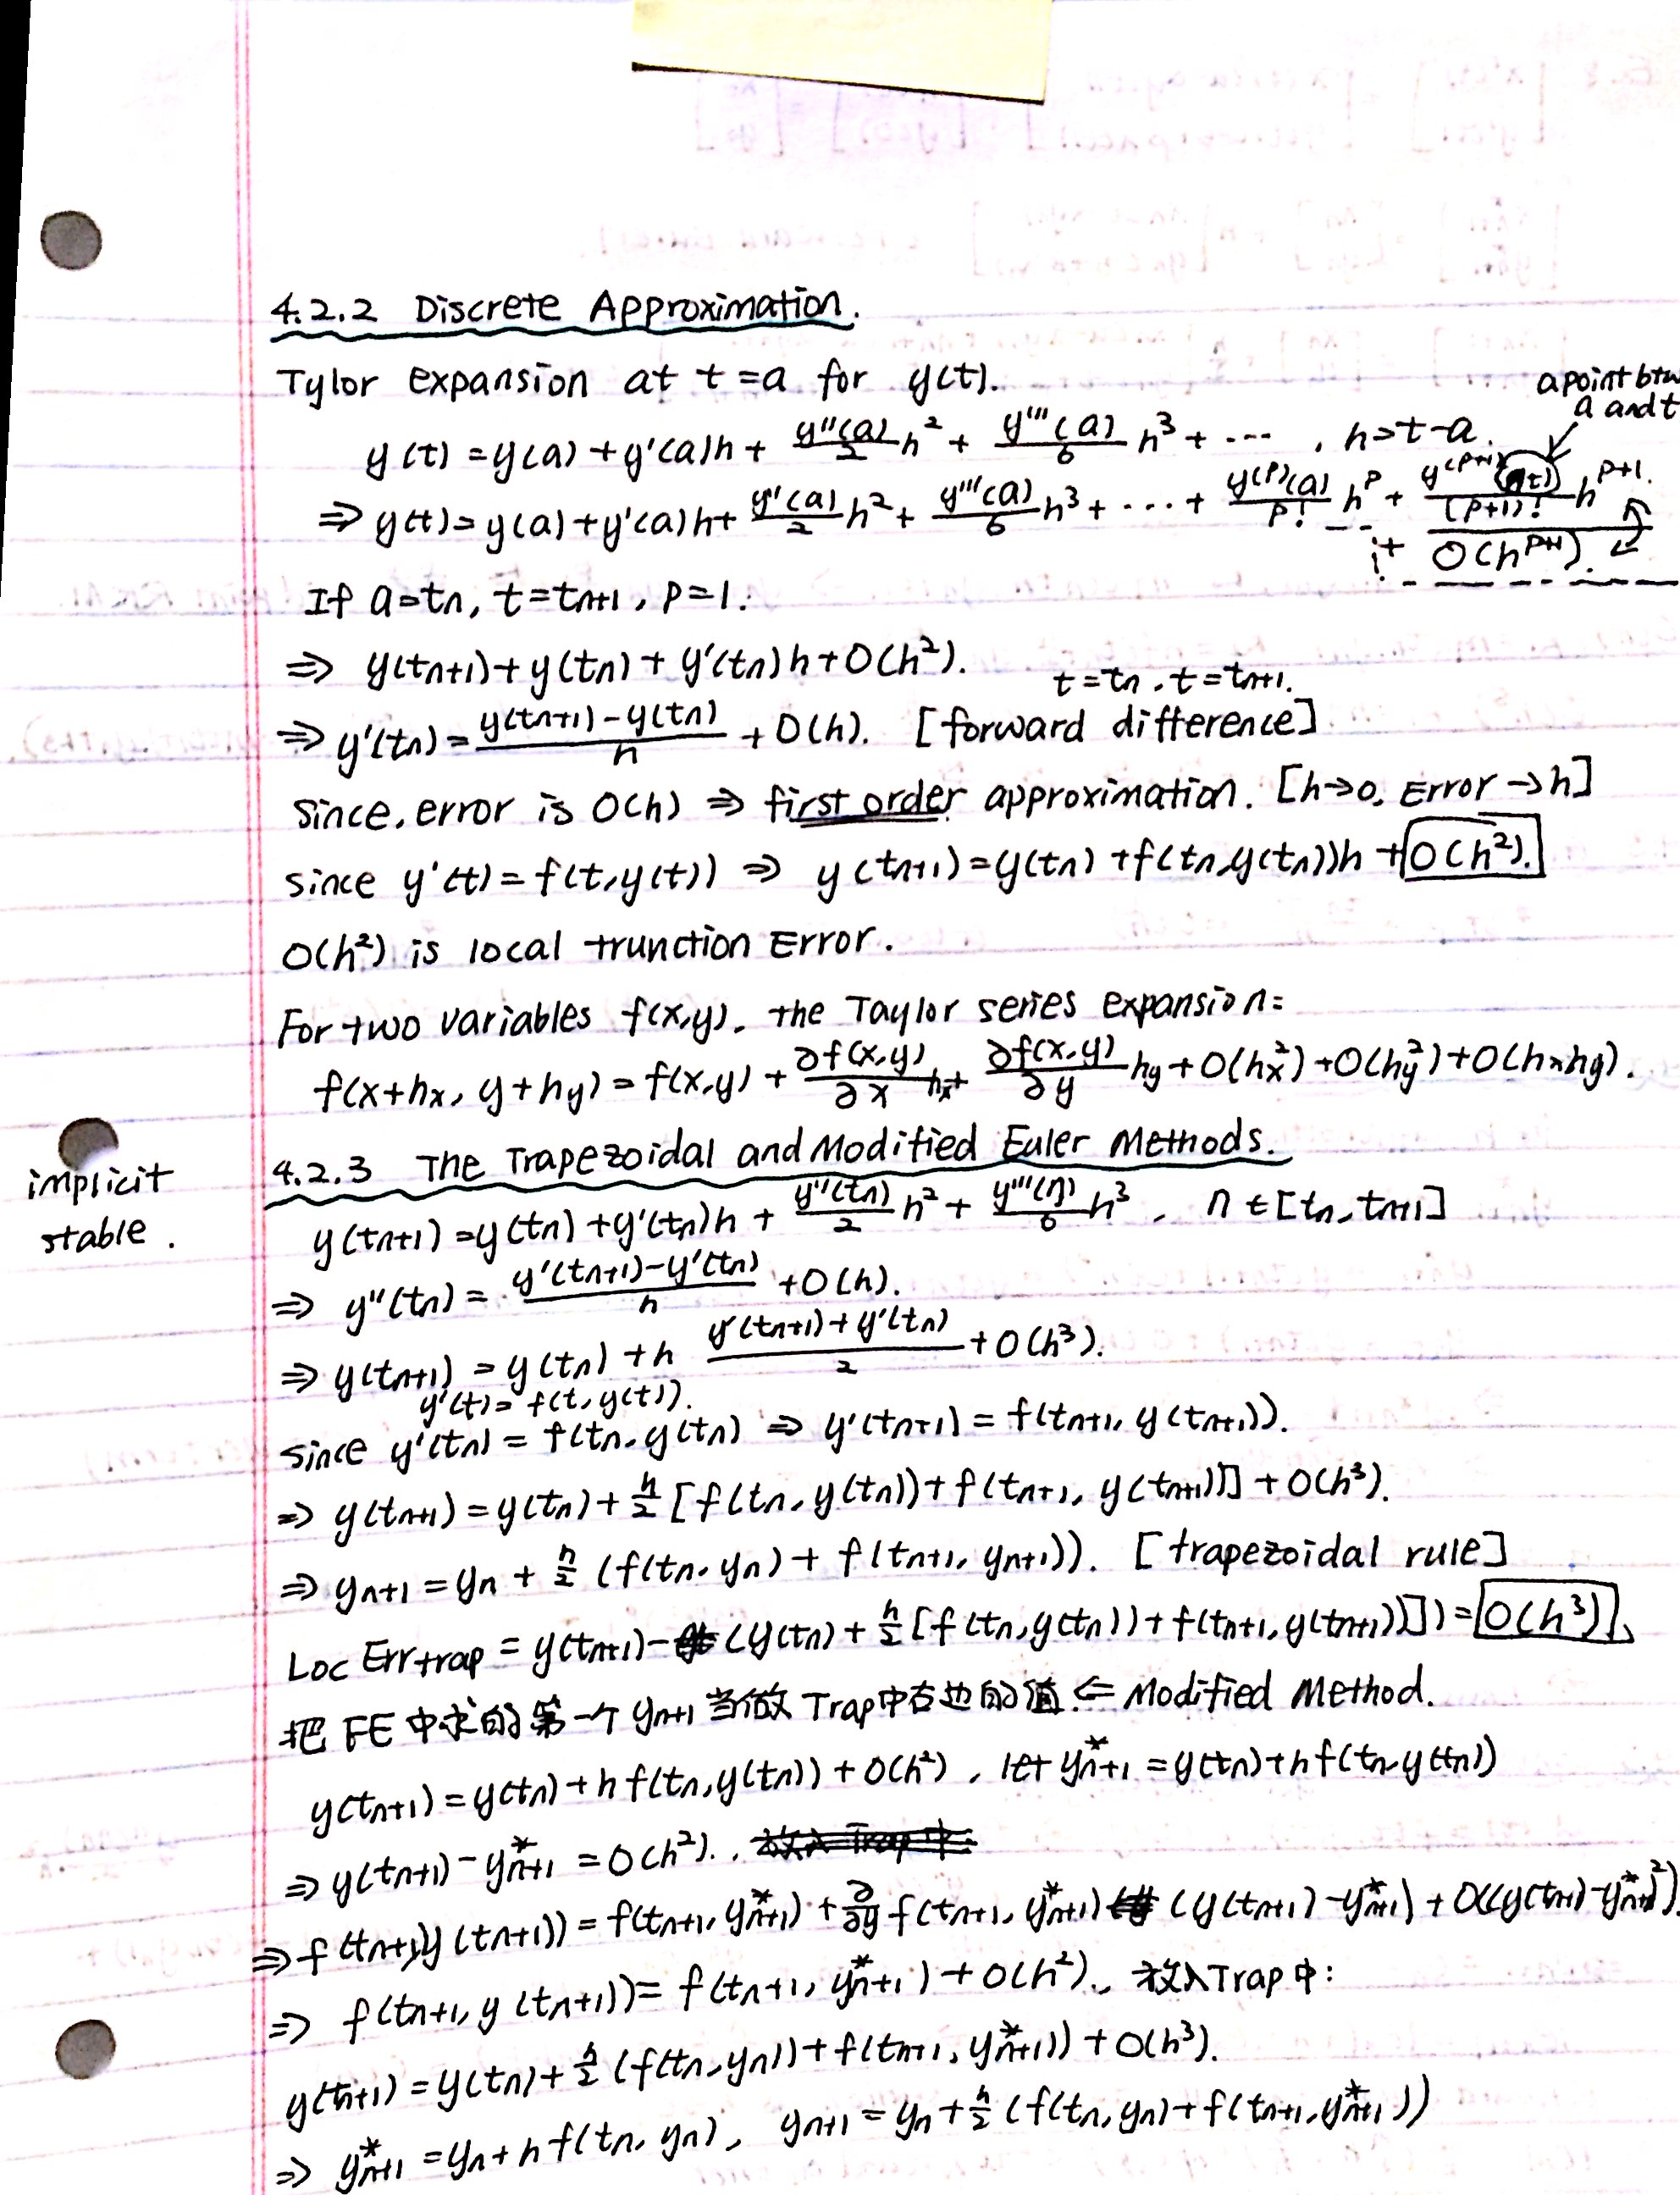 4.2.2 Discrete Approximation.
Tylor expansion at t=a for y(t).
a point btw
a and t
y(t) = y(a) + y'(a)h + y''(a)/2 h² + y'''(a)/6 h³ + ··· , h=t-a.
⇒ y(t) = y(a) + y'(a)h + y''(a)/2 h² + y'''(a)/6 h³ + ··· + y^(p)(a)/p! h^p + y^(p+1)(t)/(p+1)! h^(p+1).
+ O(h^(p+1)).
If a=tn, t=tn+1, p=1.
⇒ y(tn+1) + y(tn) + y'(tn)h + O(h²).
t=tn, t=tn+1.
⇒ y'(tn) = (y(tn+1) - y(tn))/h + O(h). [forward difference]
since, error is O(h) ⇒ first order approximation. [h→0, Error →h]
since y'(t) = f(t,y(t)) ⇒ y(tn+1) = y(tn) + f(tn,y(tn))h + O(h²).
O(h²) is local trunction Error.
For two variables f(x,y), the Taylor series expansion:
f(x+hx, y+hy) = f(x,y) + ∂f(x,y)/∂x hx + ∂f(x,y)/∂y hy + O(hx²) + O(hy²) + O(hxhy).
4.2.3 The Trapezoidal and Modified Euler Methods.
implicit
stable.
y(tn+1) = y(tn) + y'(tn)h + y''(tn)/2 h² + y'''(η)/6 h³, η ∈ [tn, tn+1]
⇒ y''(tn) = (y'(tn+1) - y'(tn))/h + O(h).
⇒ y(tn+1) = y(tn) + h (y'(tn+1) + y'(tn))/2 + O(h³).
y'(t) = f(t, y(t)).
since y'(tn) = f(tn, y(tn) ⇒ y'(tn+1) = f(tn+1, y(tn+1)).
⇒ y(tn+1) = y(tn) + h/2 [f(tn, y(tn)) + f(tn+1, y(tn+1))] + O(h³).
⇒ yn+1 = yn + h/2 (f(tn, yn) + f(tn+1, yn+1)). [trapezoidal rule]
Loc Err trap = y(tn+1) - (y(tn) + h/2 [f(tn,y(tn)) + f(tn+1,y(tn+1))]) = O(h³).
把 FE 中求的第一个 yn+1 当做 Trap中右边的值 ⇐ Modified Method.
y(tn+1) = y(tn) + h f(tn,y(tn)) + O(h²), let y*n+1 = y(tn) + h f(tn,y(tn))
⇒ y(tn+1) - y*n+1 = O(h²).
⇒ f(tn+1,y(tn+1)) = f(tn+1, y*n+1) + ∂/∂y f(tn+1, y*n+1) (y(tn+1) - y*n+1) + O((y(tn+1) - y*n+1)²)
⇒ f(tn+1, y(tn+1)) = f(tn+1, y*n+1) + O(h²). 放入Trap中:
y(tn+1) = y(tn) + h/2 (f(tn,yn)) + f(tn+1, y*n+1)) + O(h³).
⇒ y*n+1 = yn + h f(tn, yn), yn+1 = yn + h/2 (f(tn, yn) + f(tn+1, y*n+1))